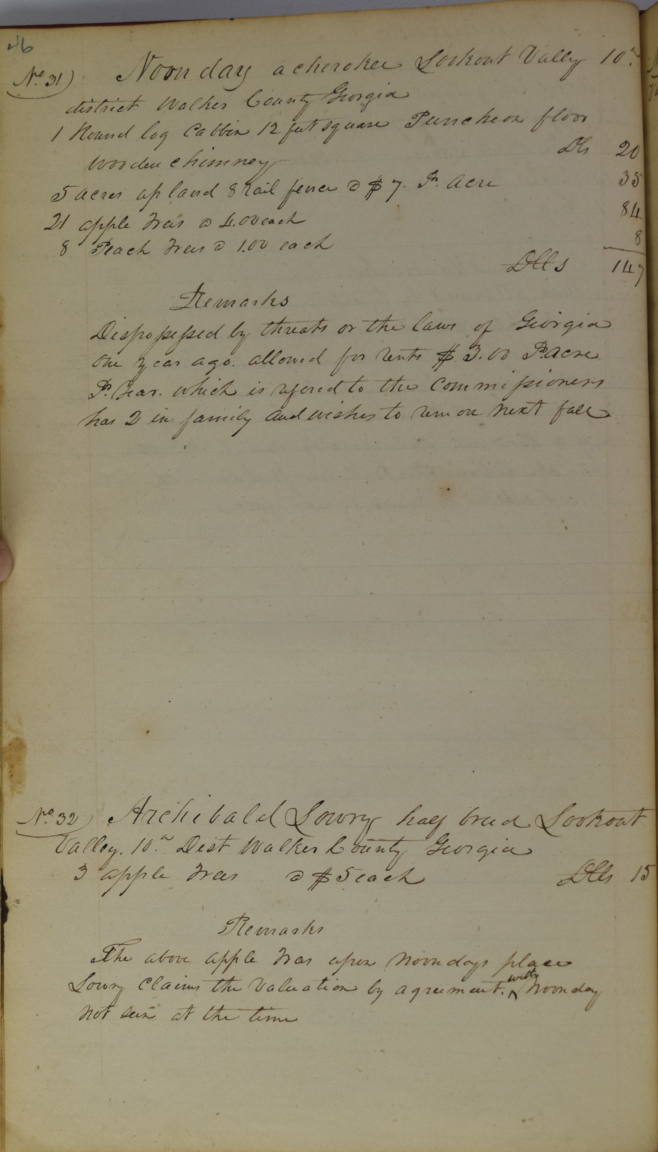 46
No 31) Noonday a cherokee Lookout Valley 10th
district Walker County Georgia
1 Round log Cabbin 12 feet square Puncheon floor
wooden chimney Dls 20
5 acres upland 8 rail fence @ $7. Pr. acre 35
21 apple trees @ 4.00 each 84
8 Peach trees @ 1.00 each 8
Dlls 147
Remarks
Dispossessed by threats or the laws of Georgia
one year ago. allowed for rents $3.00 Pr acre
Pr. Year. which is refered to the Commissioners
has 2 in family and wishes to remove next fall
No 32) Archibald Lowry half breed Lookout
Valley. 10th Dist Walker County Georgia
3 apple trees @ $5 each Dlls 15
Remarks
The above apple trees upon Noondays place
Lowry Claims the Valuation by agreement. with Noonday
not seen at the time